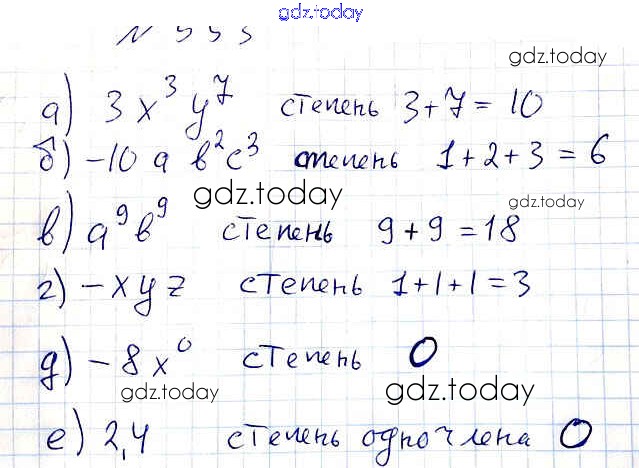 gdz.today
N 333
gdz.today
а) 3x³y⁷ степень 3+7=10
б) -10 a b²c³ степень 1+2+3=6
gdz.today
gdz.today
в) a⁹b⁹ степень 9+9=18
г) -xyz степень 1+1+1=3
д) -8x⁰ степень 0
gdz.today
gdz.today
е) 2,4 степень одночлена 0